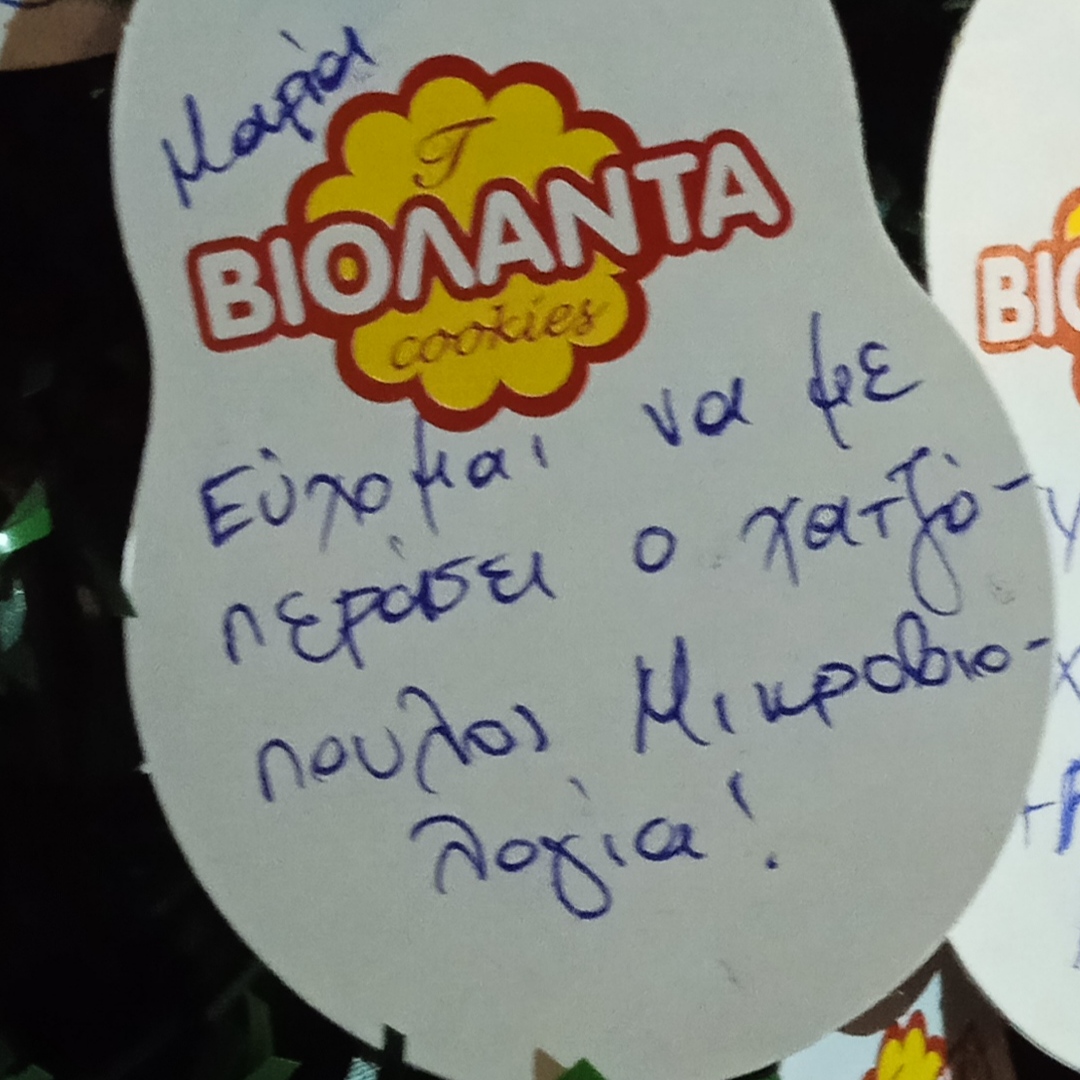 Μαρία
T
ΒΙΟΛΑΝΤΑ
cookies
Εύχομαι να με
περάσει ο χατζό-
πουλος Μικροβιο-
λογία!
ΒΙΟ